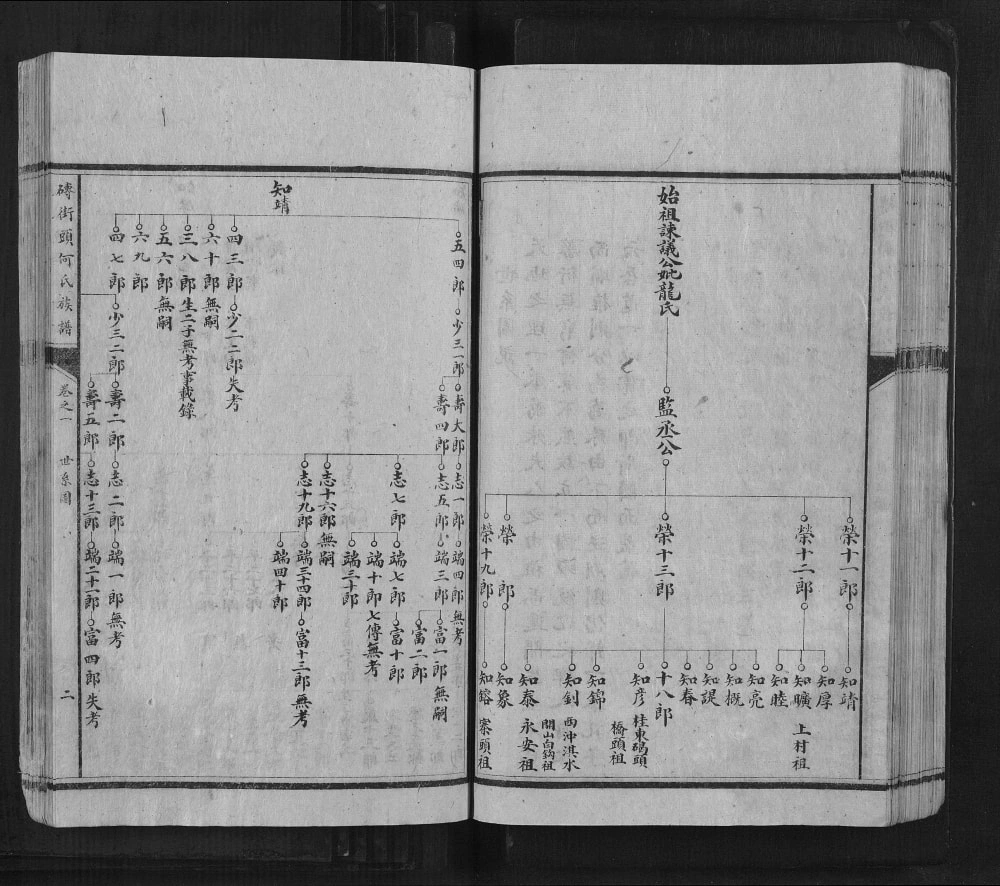 始祖諫議公妣龍氏
監丞公
榮十一郎
榮十二郎
榮十三郎
榮 郎
榮十九郎
知靖
知厚
知曠 上村祖
知睦
知亮
知概
知諟
知春
十八郎
知彥 桂東碼頭橋頭祖
知錦
知釗 西沖淇水
開山白鈎祖
知泰 永安祖
知象
知鎔 寨頭祖
知靖
五四郎
四三郎
六十郎無嗣
三八郎生二子無考事載錄
五六郎無嗣
六九郎
四七郎
少三一郎
少二二郎失考
少三二郎
壽大郎
壽四郎
壽二郎
壽五郎
志一郎
志五郎
志七郎
志十六郎無嗣
志十九郎
志二郎
志十三郎
端四郎無考
端三郎
端七郎
端十郎七傳無考
端三十郎
端三十四郎
端四十郎
端一郎無考
端二十一郎
富一郎無嗣
富二郎
富十郎
富十三郎無考
富四郎失考
磚街頭何氏族譜
卷之一
世系圖
二